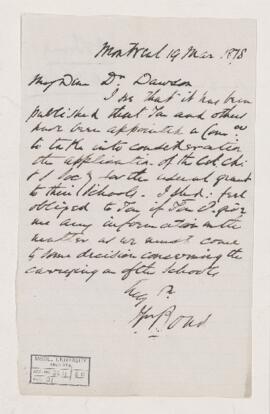 Montreal 19 Mar. 1878
My Dear Dr. Dawson
I see that it has been
published that You and others
have been appointed a Com
to take into consideration
the application of the Col. Ch
& S. Soc'y for the usual grant
to their Schools. I shd. feel
obliged to You if You'd give
me any information on the
matter as we must come
to some decision concerning the
carrying on of the Schools
Wm Bond
McGILL UNIVERSITY
ARCHIVES
ACC. NO.